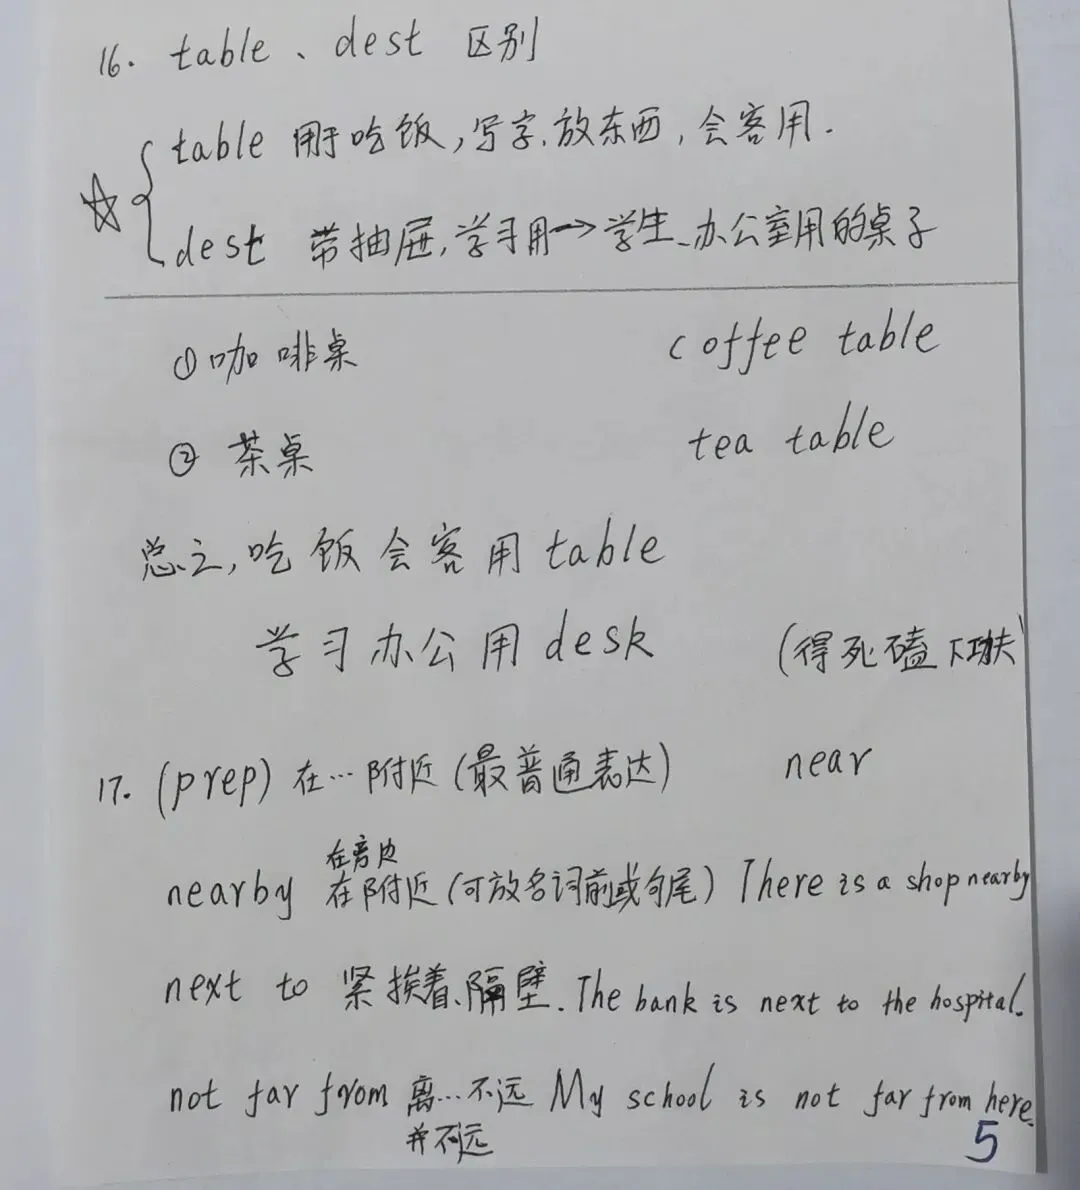 16. table、dest 区别
table 用于吃饭,写字.放东西,会客用.
☆
dest 带抽屉,学习用→学生、办公室用的桌子
①咖啡桌 coffee table
② 茶桌 tea table
总之,吃饭会客用 table
学习办公用 desk (得死磕下功夫)
17. (prep) 在…附近(最普通表达) near
在旁边
nearby 在附近(可放名词前或句尾) There is a shop nearby
next to 紧挨着、隔壁. The bank is next to the hospital.
not far from 离…不远 My school is not far from here.
并不远
5